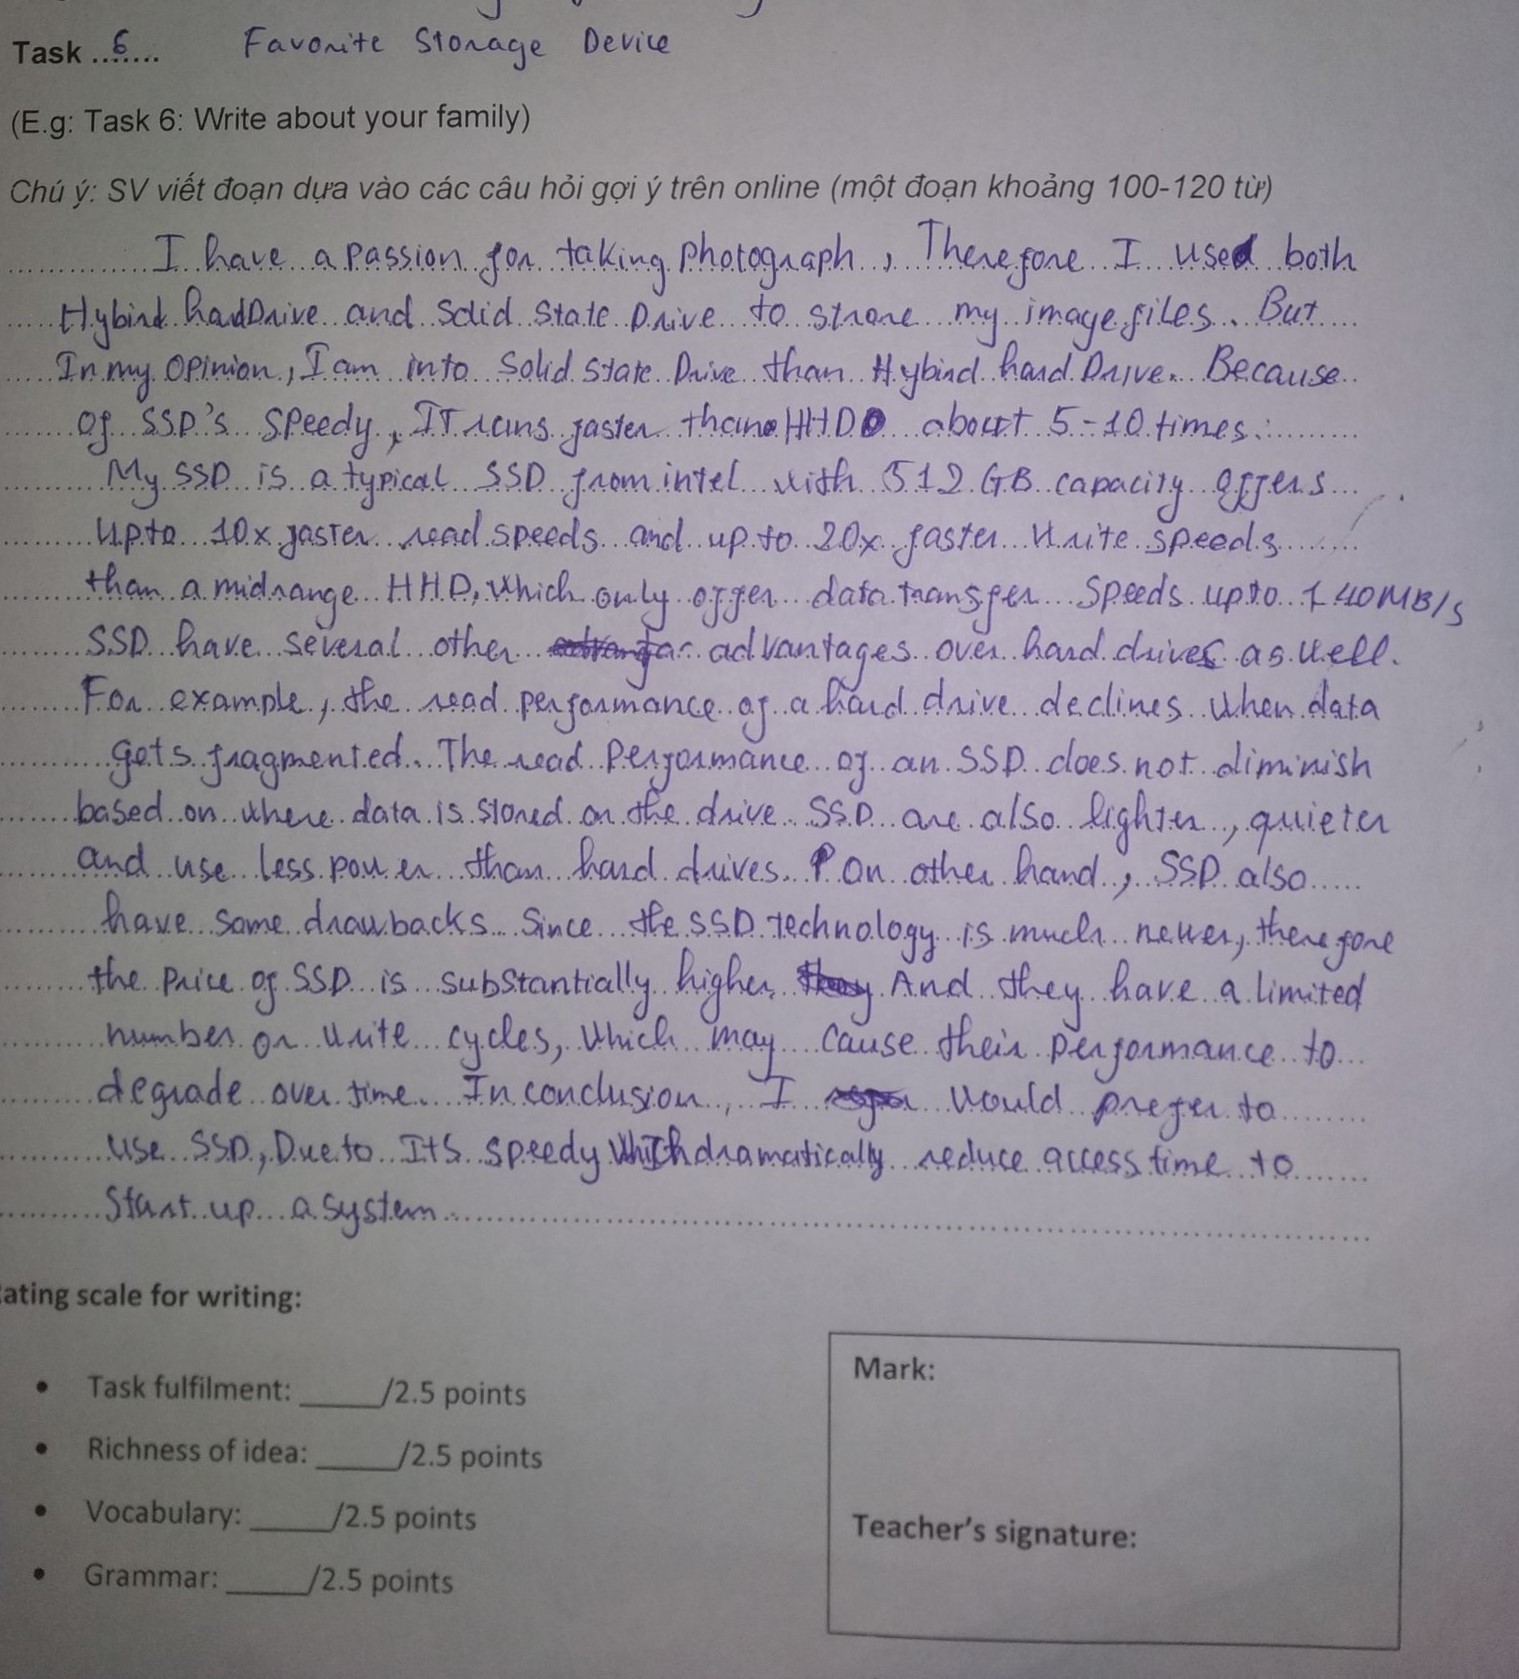 Task ..6.....   Favorite Storage Device
(E.g: Task 6: Write about your family)
Chú ý: SV viết đoạn dựa vào các câu hỏi gợi ý trên online (một đoạn khoảng 100-120 từ)
I have a passion for taking photograph, Therefore I used both
Hybird hardDrive and Solid State Drive to strore my image files. But
In my opinion, I am into Solid State Drive than Hybird hard Drive. Because
of SSD's Speedy, IT runs faster than HHD about 5-10 times.
My SSD is a typical SSD from intel with 512 GB capacity offers
up to 10x faster read speeds and up to 20x faster write speeds
than a midrange HHD, which only offer data transfer Speeds up to 140MB/s
SSD have several other advantages over hard drives as well.
For example, the read performance of a hard drive declines when data
gets fragmented. The read Performance of an SSD does not diminish
based on where data is stored on the drive. SSD are also lighter, quieter
and use less power than hard drives. On other hand, SSD also
have some drawbacks. Since the SSD technology is much newer, therefore
the Price of SSD is substantially higher. And they have a limited
number or write cycles, which may cause their performance to
degrade over time. In conclusion, I would prefer to
use SSD, Due to Its speedy which dramatically reduce access time to
Start up a system.
ating scale for writing:
• Task fulfilment: _____/2.5 points
• Richness of idea: _____/2.5 points
• Vocabulary: _____/2.5 points
• Grammar: _____/2.5 points
Mark:
Teacher's signature: